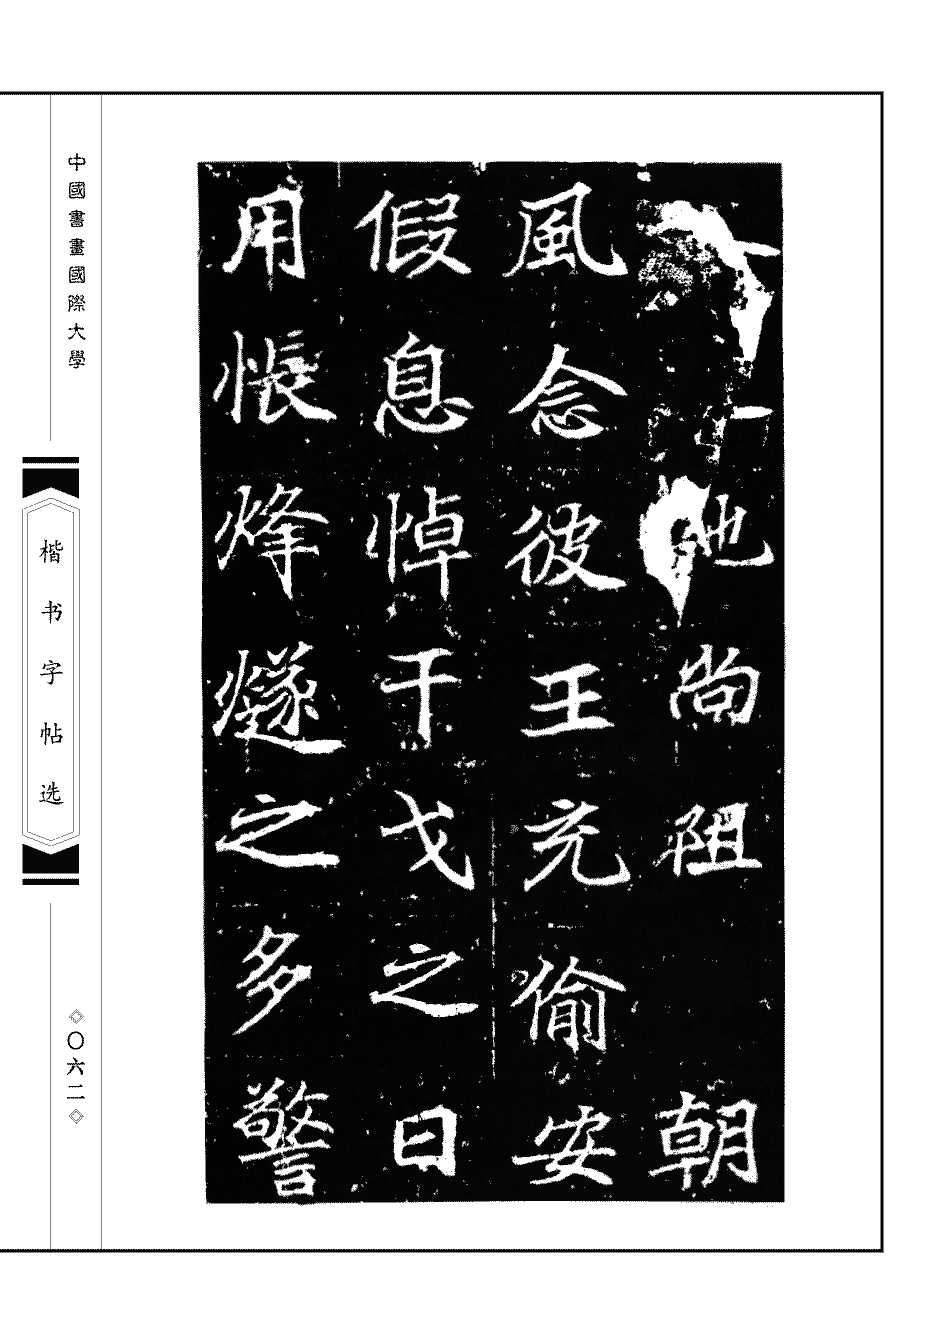 地尚阻朝
風念彼王充偷安
假息悼干戈之日
用悵烽燧之多警
中國書畫國際大學
楷书字帖选
◇〇六二◇